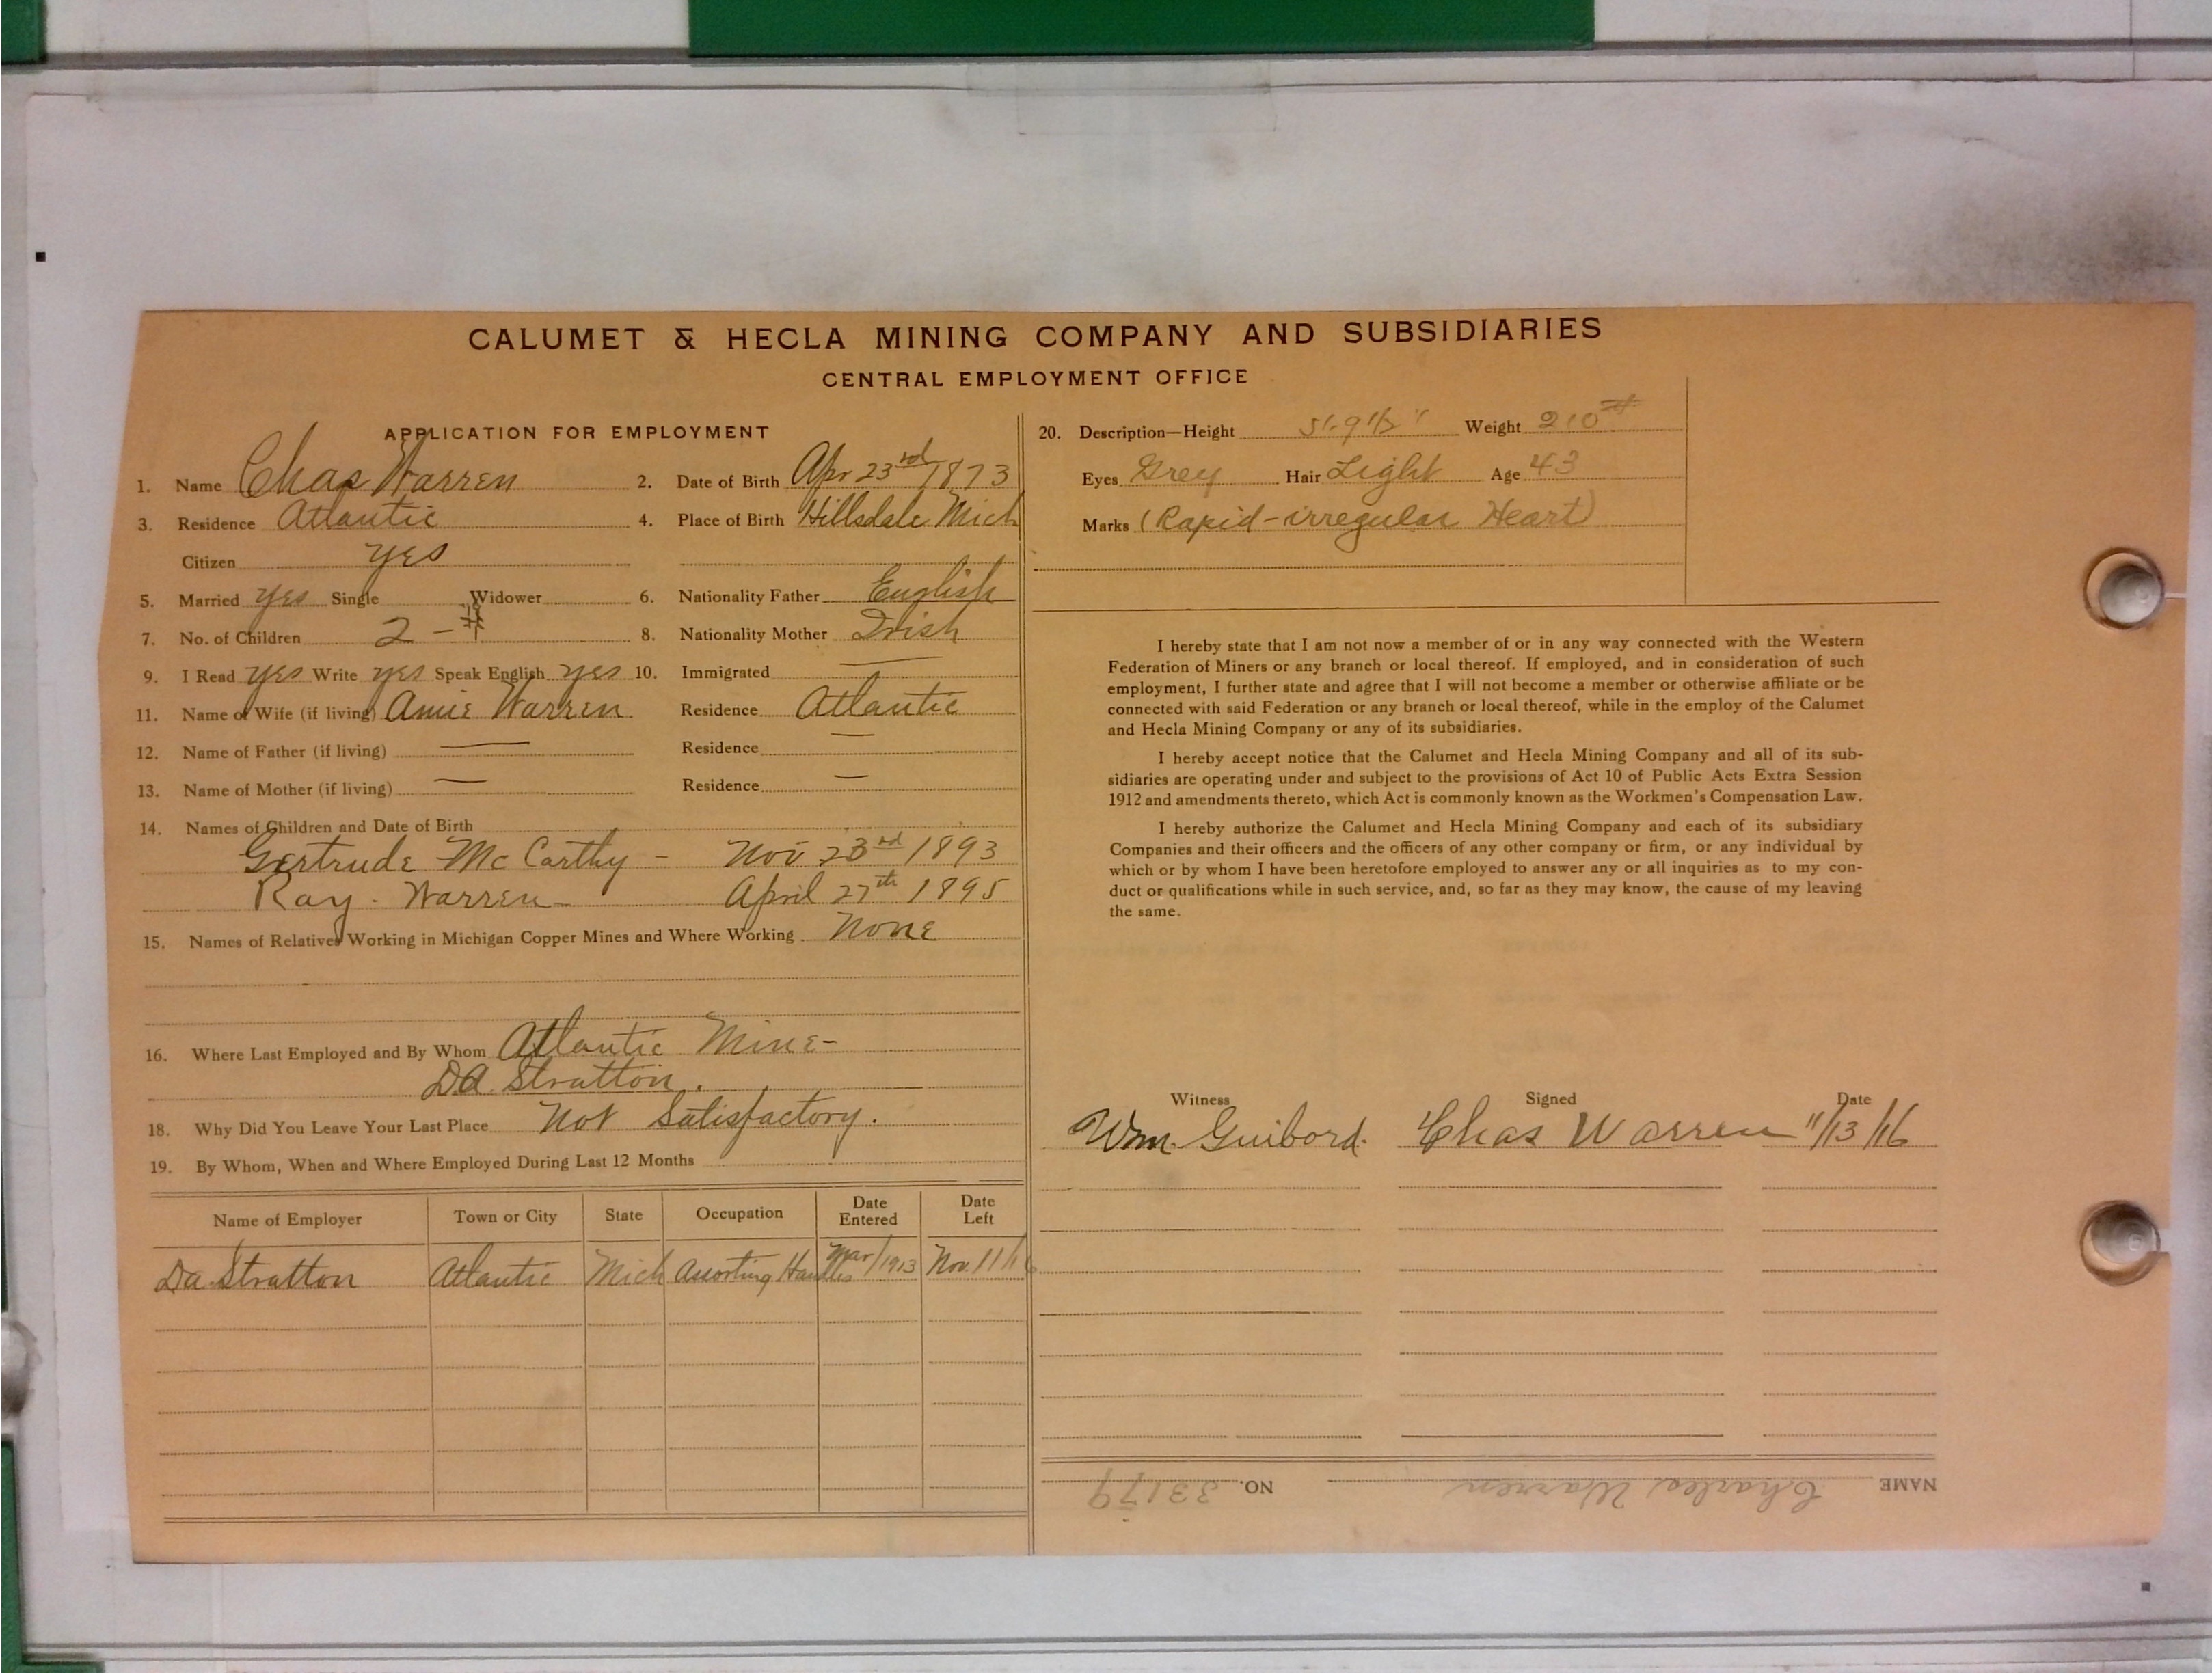 CALUMET & HECLA MINING COMPANY AND SUBSIDIARIES
CENTRAL EMPLOYMENT OFFICE
APPLICATION FOR EMPLOYMENT
1. Name Chas Warren 2. Date of Birth Apr 23rd 1873
3. Residence Atlantic 4. Place of Birth Hillsdale Mich
Citizen yes
5. Married yes Single Widower 6. Nationality Father English
7. No. of Children 2 - 8. Nationality Mother Irish
9. I Read yes Write yes Speak English yes 10. Immigrated —
11. Name of Wife (if living) Amie Warren Residence Atlantic
12. Name of Father (if living) — Residence —
13. Name of Mother (if living) — Residence —
14. Names of Children and Date of Birth
Gertrude McCarthy - Nov 23rd 1893
Ray - Warren - April 27th 1895
15. Names of Relatives Working in Michigan Copper Mines and Where Working None
16. Where Last Employed and By Whom Atlantic Mine-
Da Stratton.
18. Why Did You Leave Your Last Place Not Satisfactory.
19. By Whom, When and Where Employed During Last 12 Months
Name of Employer Town or City State Occupation Date Entered Date Left
Da Stratton Atlantic Mich Assorting Handles Mar/1913 Nov 11/16
20. Description—Height 5'-9 1/2" Weight 210#
Eyes Grey Hair Light Age 43
Marks (Rapid-irregular Heart)
I hereby state that I am not now a member of or in any way connected with the Western
Federation of Miners or any branch or local thereof. If employed, and in consideration of such
employment, I further state and agree that I will not become a member or otherwise affiliate or be
connected with said Federation or any branch or local thereof, while in the employ of the Calumet
and Hecla Mining Company or any of its subsidiaries.
I hereby accept notice that the Calumet and Hecla Mining Company and all of its sub-
sidiaries are operating under and subject to the provisions of Act 10 of Public Acts Extra Session
1912 and amendments thereto, which Act is commonly known as the Workmen's Compensation Law.
I hereby authorize the Calumet and Hecla Mining Company and each of its subsidiary
Companies and their officers and the officers of any other company or firm, or any individual by
which or by whom I have been heretofore employed to answer any or all inquiries as to my con-
duct or qualifications while in such service, and, so far as they may know, the cause of my leaving
the same.
Witness Signed Date
Wm. Guibord. Chas Warren 11/13/16
NAME Charles Warren NO. 33179